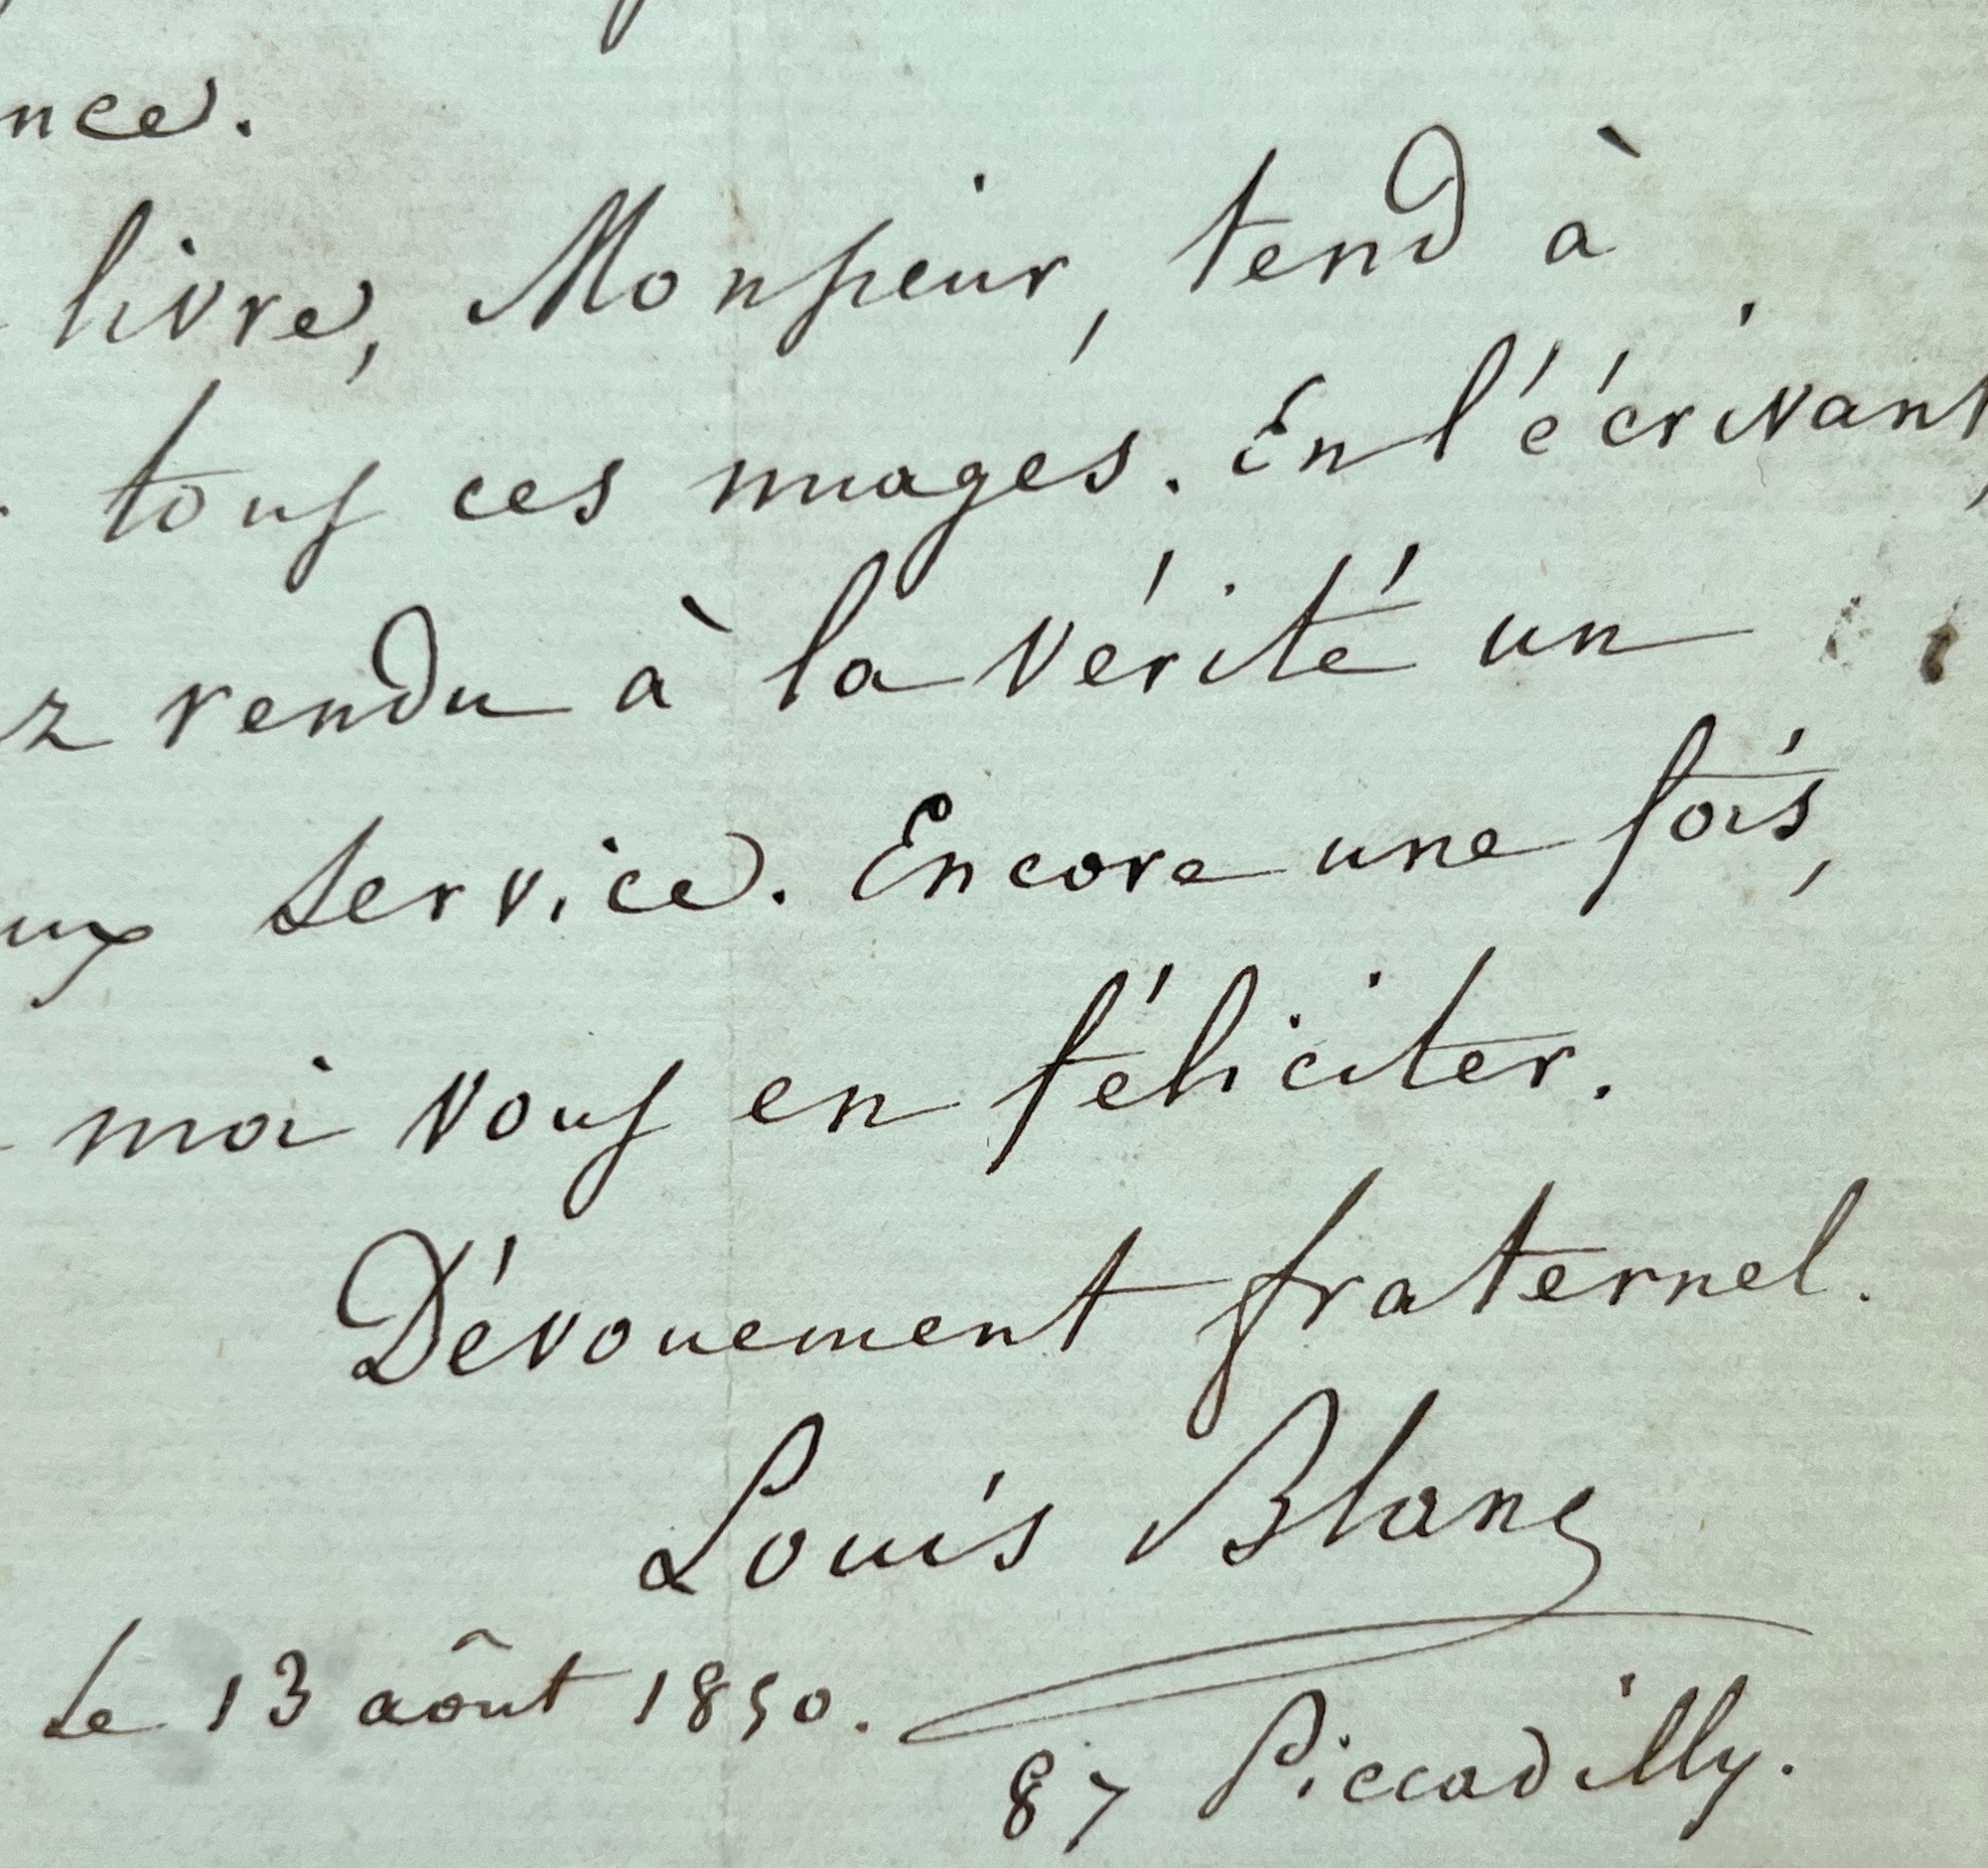 nce.
livre, Monsieur, tend à
tous ces nuages. En l'écrivant,
z rendu à la vérité un
ux service. Encore une fois,
moi vous en féliciter.
Dévouement fraternel.
Louis Blanc
Le 13 aôut 1850.
87 Piccadilly.